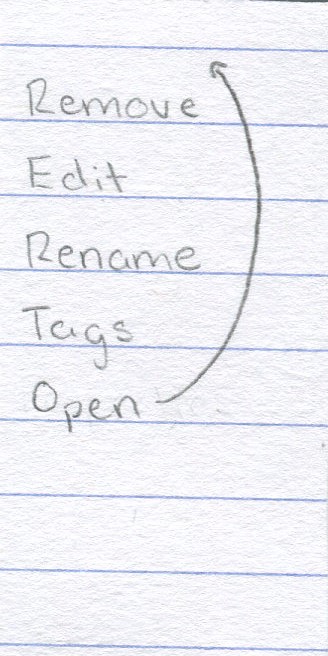 Remove
Edit
Rename
Tags
Open